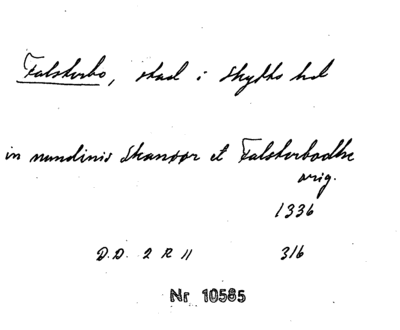 Falsterbo, stad i Skytts hd
in nundinis Skanøør et Falsterbodhe
orig.
1336
D.D. 2 R 11 316
Nr 10565